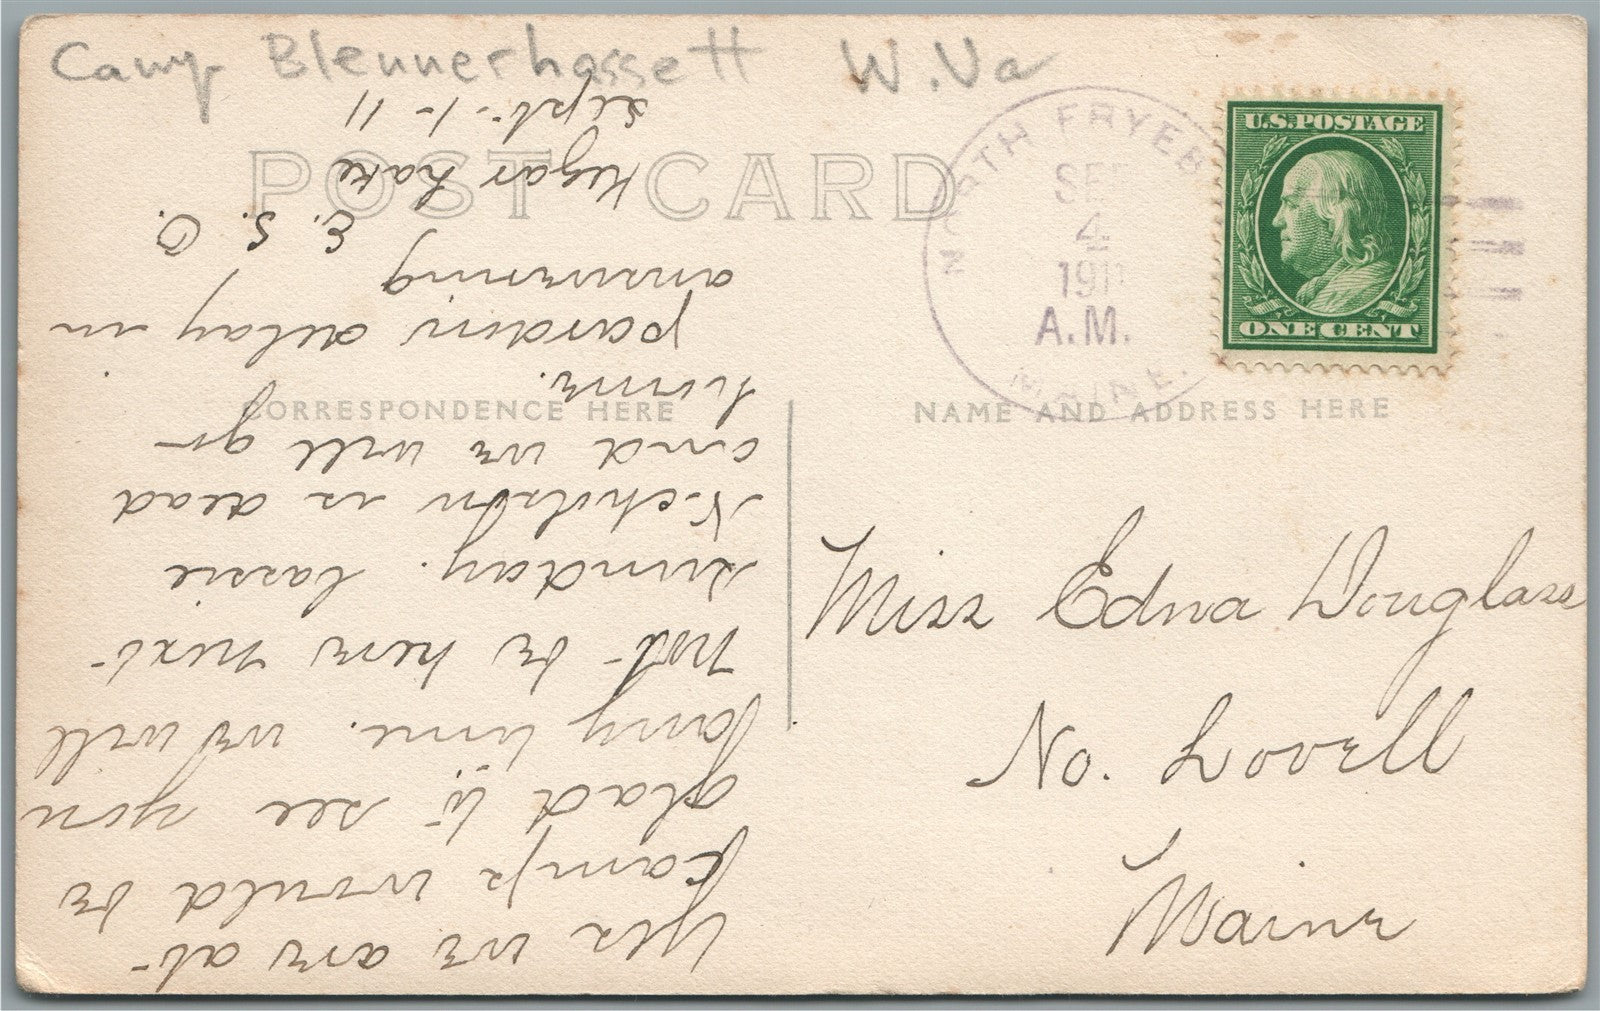 Camp Blennerhassett W.Va
POST CARD
NORTH FRYEB
SEP
4
1911
A.M.
MAINE.
U.S. POSTAGE
ONE CENT
CORRESPONDENCE HERE
NAME AND ADDRESS HERE
Yes we are at
Camp & would be
glad to see you
any time. we will
not be here next
sunday. Lassie
Nicholson is dead
and we will go
home.
pardon delay in
answering
E. S. O.
Kezar Lake
Sept-1-11
Miss Edna Douglass
No. Lovell
Maine